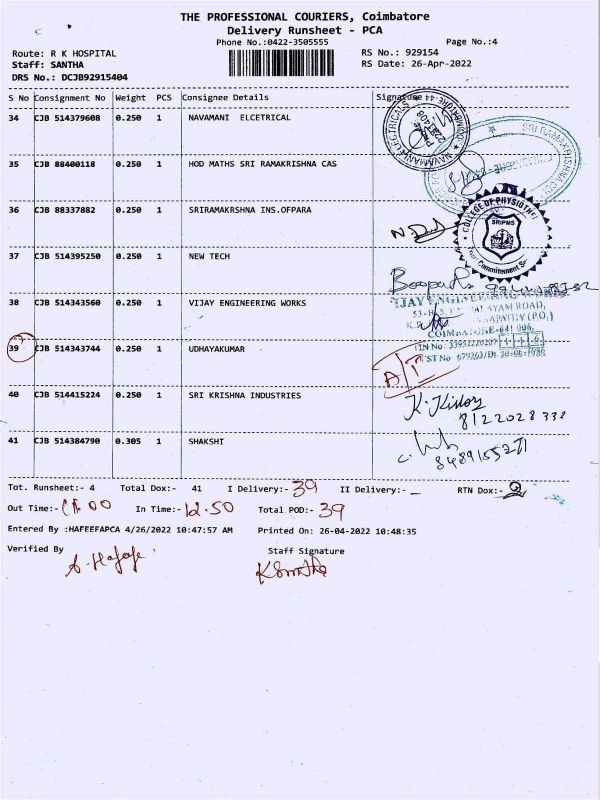 THE PROFESSIONAL COURIERS, Coimbatore
Delivery Runsheet - PCA
Phone No.:0422-3505555
Page No.:4
Route: R K HOSPITAL
RS No.: 929154
Staff: SANTHA
RS Date: 26-Apr-2022
DRS No.: DCJB92915404
S No Consignment No Weight PCS Consignee Details Signature
34 CJB 514379608 0.250 1 NAVAMANI ELCETRICAL
35 CJB 88400118 0.250 1 HOD MATHS SRI RAMAKRISHNA CAS
36 CJB 88337882 0.250 1 SRIRAMAKRSHNA INS.OFPARA
COLLEGE OF PHYSIOTHE
SRIPMS
37 CJB 514395250 0.250 1 NEW TECH
38 CJB 514343560 0.250 1 VIJAY ENGINEERING WORKS
COIMBATORE-641 006.
39 CJB 514343744 0.250 1 UDHAYAKUMAR
40 CJB 514415224 0.250 1 SRI KRISHNA INDUSTRIES
K. Kishor
8122028338
41 CJB 514384790 0.305 1 SHAKSHI
Tot. Runsheet:- 4 Total Dox:- 41 I Delivery:- 39 II Delivery:- - RTN Dox:- 2
Out Time:- In Time:- 12.50 Total POD:- 39
Entered By :HAFEEFAPCA 4/26/2022 10:47:57 AM Printed On: 26-04-2022 10:48:35
Verified By Staff Signature